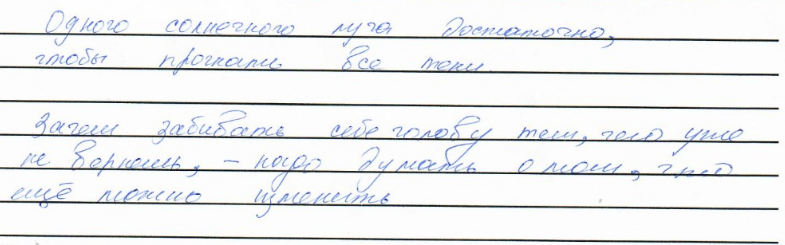 Одного солнечного луча достаточно,
чтобы прогнать все тени.
Зачем забивать себе голову тем, чего уже
не вернешь, – надо думать о том, что
ещё можно изменить